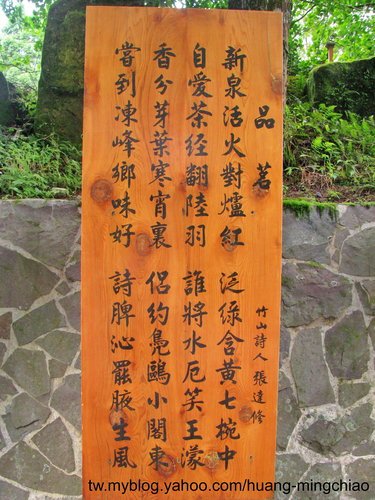 品茗
新泉活火對爐紅 泛綠含黃七椀中
自愛茶经翻陸羽 誰將水厄笑王濛
香分芽葉寒宵裏 侶約鳧鷗小閣東
嘗到凍峰鄉味好 詩脾沁罷腋生風
竹山詩人 張達修
tw.myblog.yahoo.com/huang-mingchiao